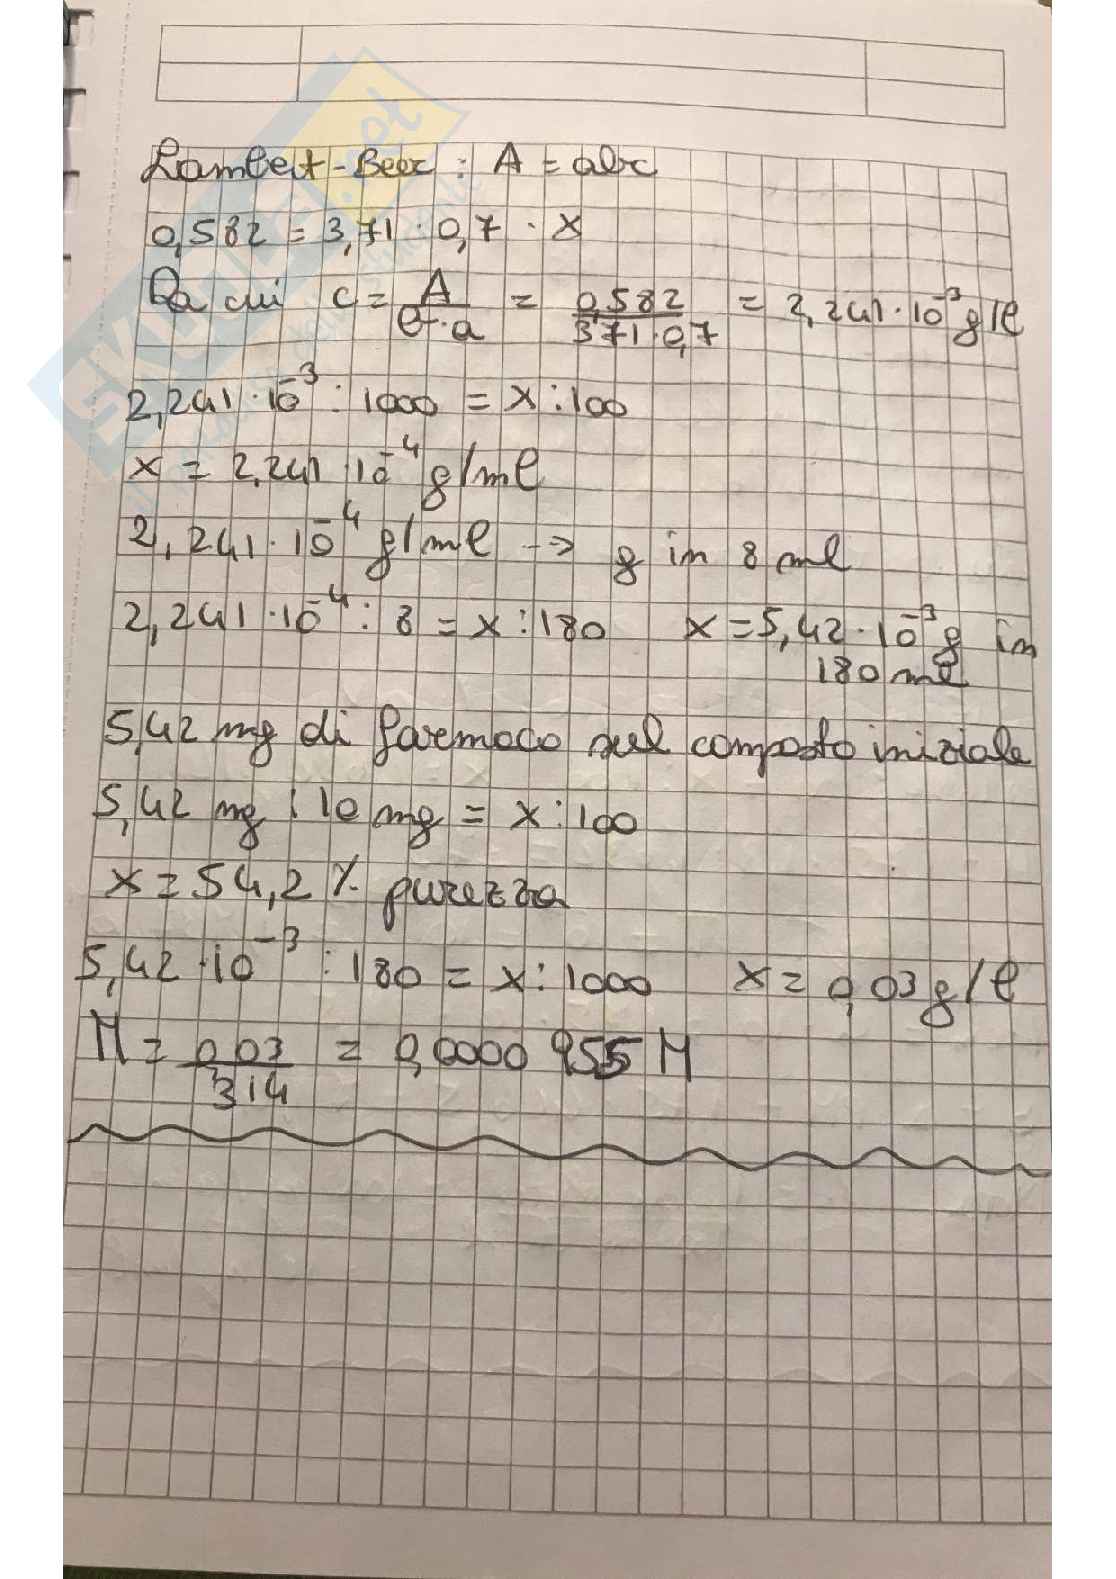 Lambert-Beer : A = abc
0,582 = 3,71 · 0,7 · x
Da cui c = A / b · a = 0,582 / 371 · 0,7 = 2,241 · 10⁻³ g/l
2,241 · 10⁻³ : 1000 = x : 100
x = 2,241 · 10⁻⁴ g/ml
2,241 · 10⁻⁴ g/ml → g in 8 ml
2,241 · 10⁻⁴ : 8 = x : 180 x = 5,42 · 10⁻³ g in
180 ml
5,42 mg di farmaco sul composto iniziale
5,42 mg : 10 mg = x : 100
x = 54,2 % purezza
5,42 · 10⁻³ : 180 = x : 1000 x = 0,03 g/l
M = 0,03 / 314 = 0,0000955 M